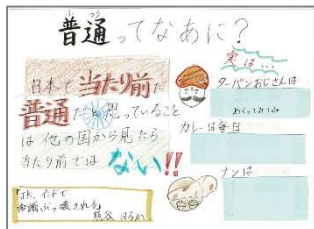 普通ってなあに？
ふつう
日本で当たり前だ
普通だと思っていること
は他の国から見たら
当たり前では ない!!
実は…
ターバンおじさんは
めくってみてね
カレーは毎日
ナンは
JK、インドで
常識ぶっ壊される
熊谷はるか